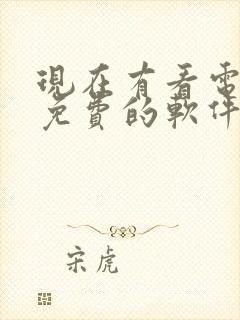 現在有看電
免費的軟件
宋虎